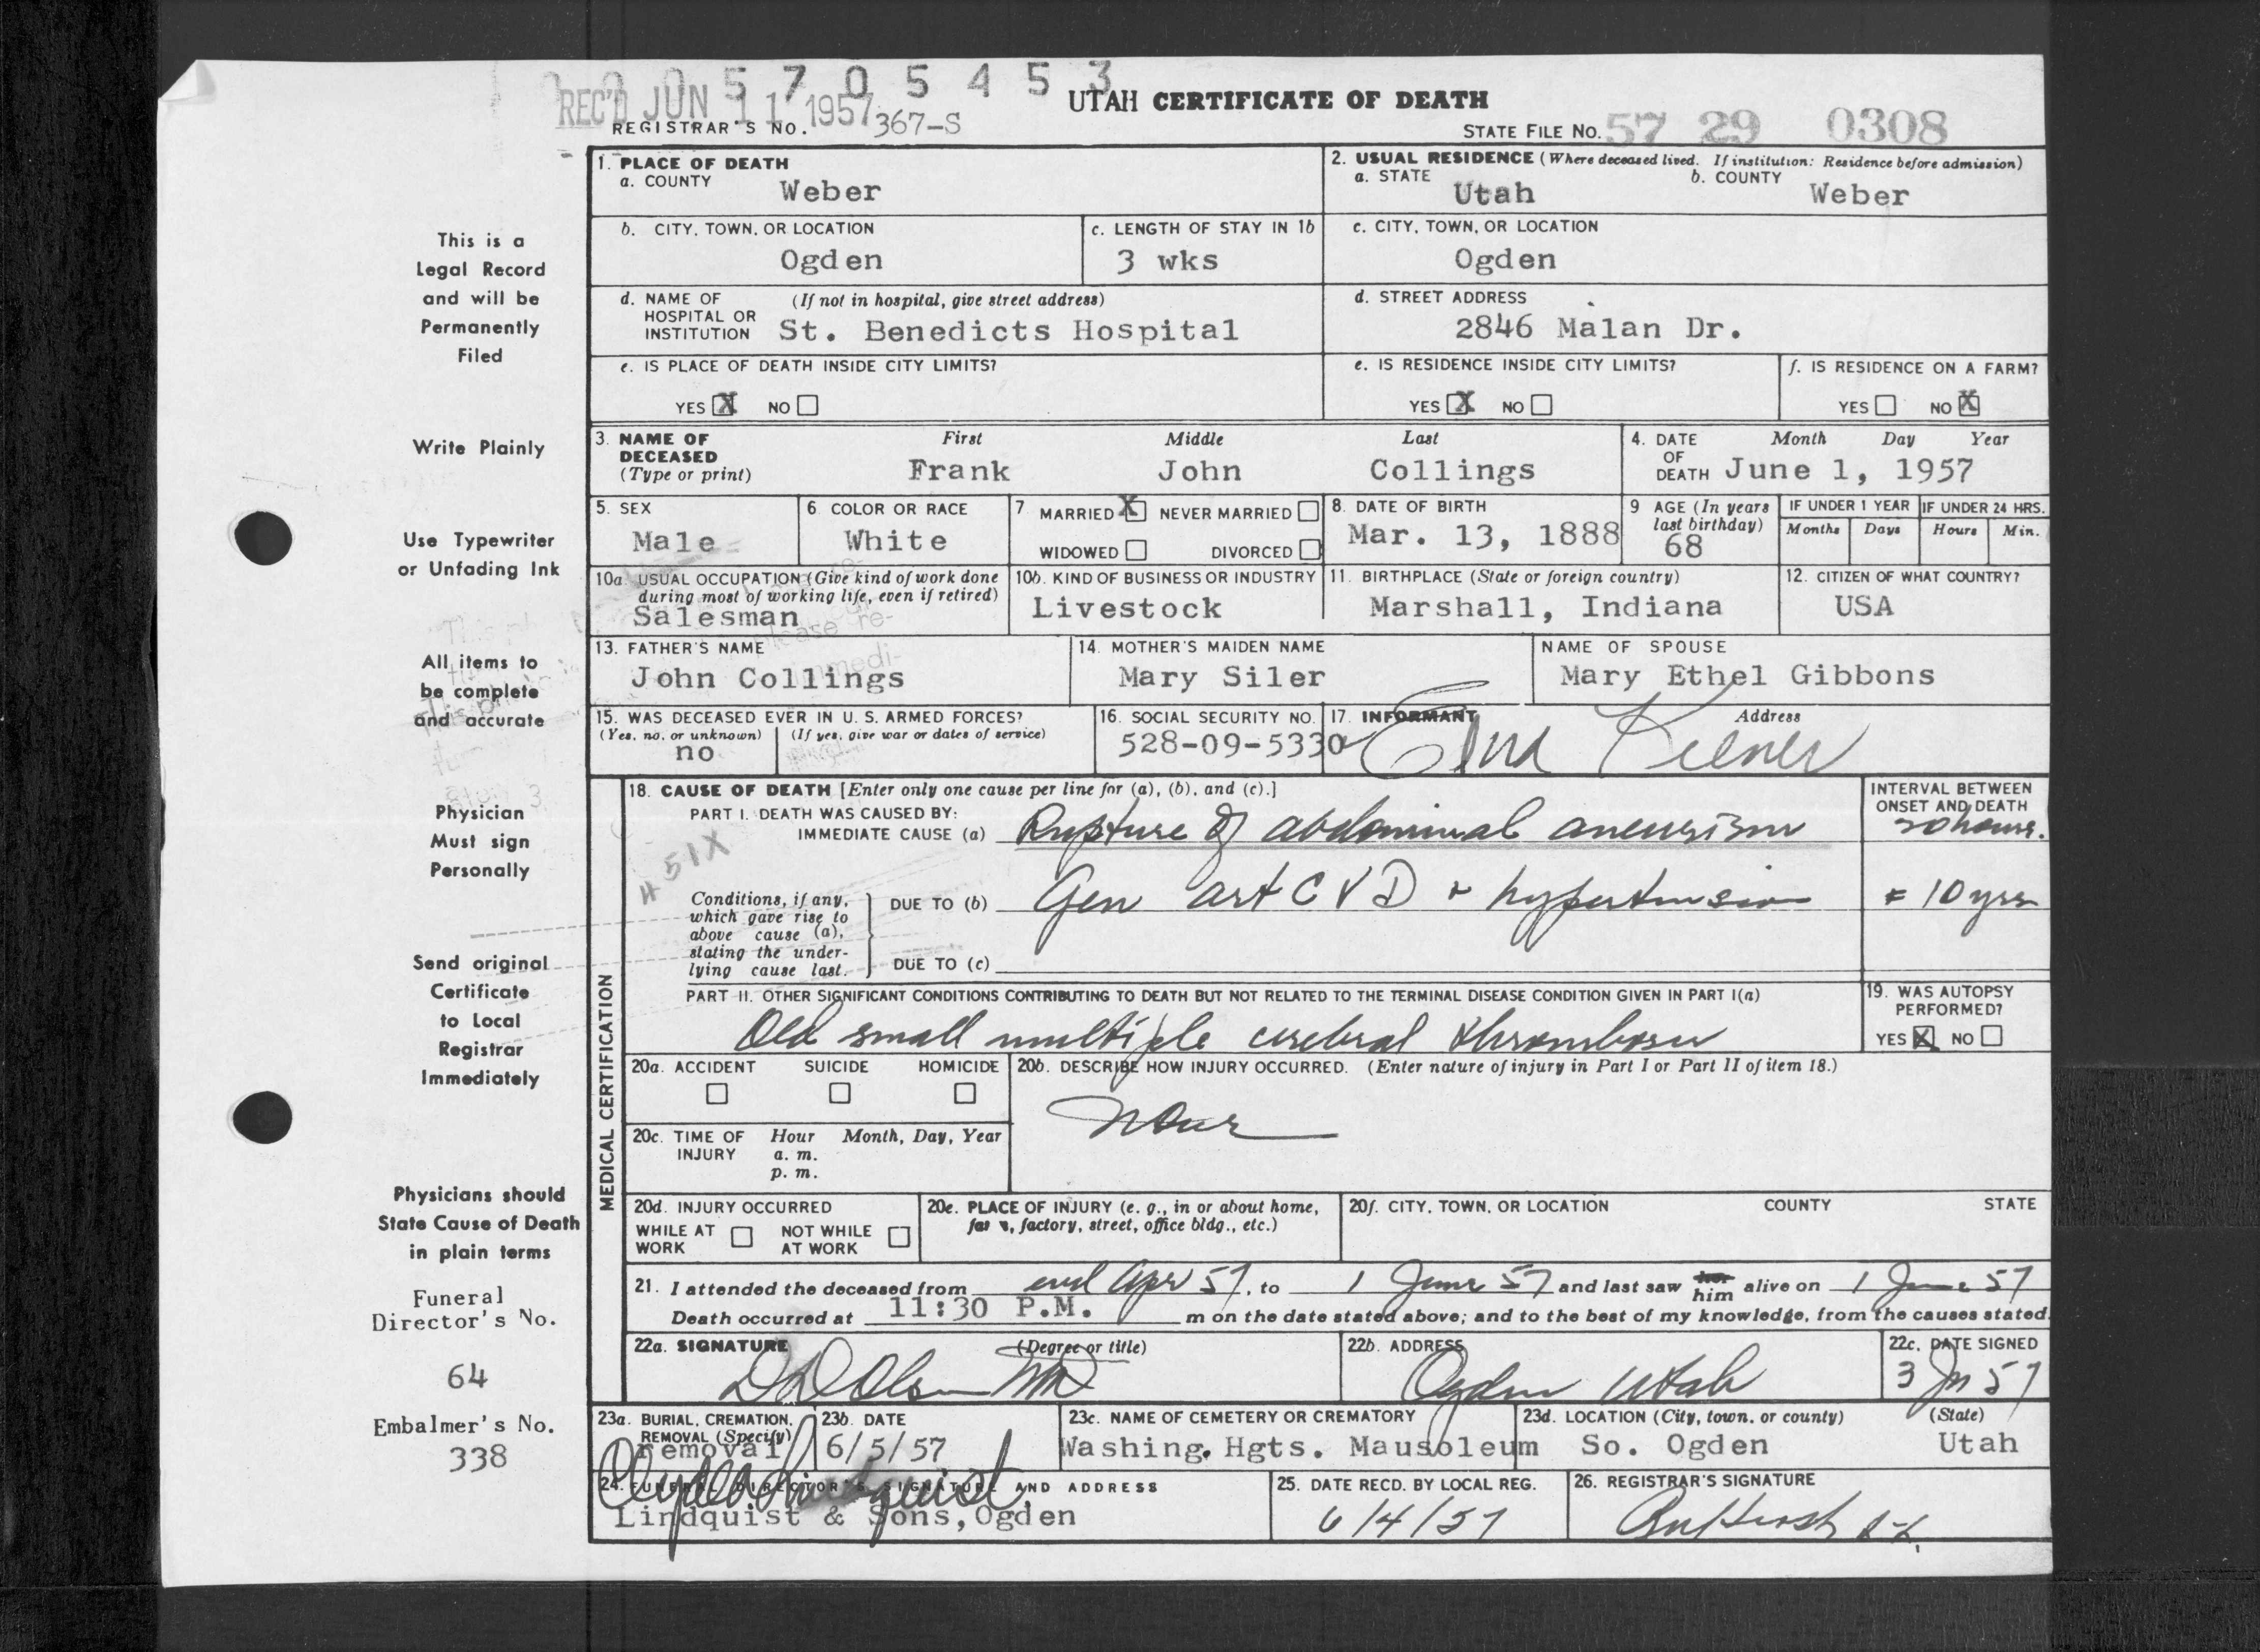 5 7 0 5 4 5 3
REC'D JUN 11 1957
UTAH CERTIFICATE OF DEATH
REGISTRAR'S NO. 367-S
STATE FILE NO. 57 29 0308
This is a
Legal Record
and will be
Permanently
Filed
Write Plainly
Use Typewriter
or Unfading Ink
All items to
be complete
and accurate
Physician
Must sign
Personally
Send original
Certificate
to Local
Registrar
Immediately
Physicians should
State Cause of Death
in plain terms
Funeral
Director's No.
64
Embalmer's No.
338
1. PLACE OF DEATH
a. COUNTY Weber
2. USUAL RESIDENCE (Where deceased lived. If institution: Residence before admission)
a. STATE Utah b. COUNTY Weber
b. CITY, TOWN, OR LOCATION
Ogden
c. LENGTH OF STAY IN 1b
3 wks
c. CITY, TOWN, OR LOCATION
Ogden
d. NAME OF HOSPITAL OR INSTITUTION (If not in hospital, give street address)
St. Benedicts Hospital
d. STREET ADDRESS
2846 Malan Dr.
e. IS PLACE OF DEATH INSIDE CITY LIMITS?
YES X NO
e. IS RESIDENCE INSIDE CITY LIMITS?
YES X NO
f. IS RESIDENCE ON A FARM?
YES NO X
3. NAME OF DECEASED (Type or print)
First Middle Last
Frank John Collings
4. DATE OF DEATH Month Day Year
June 1, 1957
5. SEX
Male
6. COLOR OR RACE
White
7. MARRIED X NEVER MARRIED
WIDOWED DIVORCED
8. DATE OF BIRTH
Mar. 13, 1888
9 AGE (In years last birthday)
68
IF UNDER 1 YEAR
Months Days
IF UNDER 24 HRS.
Hours Min.
10a. USUAL OCCUPATION (Give kind of work done during most of working life, even if retired)
Salesman
10b. KIND OF BUSINESS OR INDUSTRY
Livestock
11. BIRTHPLACE (State or foreign country)
Marshall, Indiana
12. CITIZEN OF WHAT COUNTRY?
USA
13. FATHER'S NAME
John Collings
14. MOTHER'S MAIDEN NAME
Mary Siler
NAME OF SPOUSE
Mary Ethel Gibbons
15. WAS DECEASED EVER IN U. S. ARMED FORCES?
(Yes, no, or unknown) (If yes, give war or dates of service)
no
16. SOCIAL SECURITY NO.
528-09-5330
17. INFORMANT Address
MEDICAL CERTIFICATION
18. CAUSE OF DEATH [Enter only one cause per line for (a), (b), and (c).]
INTERVAL BETWEEN ONSET AND DEATH
PART I. DEATH WAS CAUSED BY:
IMMEDIATE CAUSE (a) Rupture of abdominal aneurism
hours.
451X
Conditions, if any, which gave rise to above cause (a), stating the underlying cause last.
DUE TO (b) Gen art C V D + hypertension
10 yrs
DUE TO (c)
PART II. OTHER SIGNIFICANT CONDITIONS CONTRIBUTING TO DEATH BUT NOT RELATED TO THE TERMINAL DISEASE CONDITION GIVEN IN PART I(a)
Old small multiple cerebral thromboses
19. WAS AUTOPSY PERFORMED?
YES X NO
20a. ACCIDENT SUICIDE HOMICIDE
20b. DESCRIBE HOW INJURY OCCURRED. (Enter nature of injury in Part I or Part II of item 18.)
None
20c. TIME OF INJURY Hour Month, Day, Year
a. m.
p. m.
20d. INJURY OCCURRED
WHILE AT WORK NOT WHILE AT WORK
20e. PLACE OF INJURY (e. g., in or about home, farm, factory, street, office bldg., etc.)
20f. CITY, TOWN, OR LOCATION COUNTY STATE
21. I attended the deceased from end Apr 57, to 1 June 57 and last saw her him alive on 1 June 57
Death occurred at 11:30 P.M. m on the date stated above; and to the best of my knowledge, from the causes stated.
22a. SIGNATURE (Degree or title)
D D Olson MD
22b. ADDRESS
Ogden Utah
22c. DATE SIGNED
3 Jn 57
23a. BURIAL, CREMATION, REMOVAL (Specify)
removal
23b. DATE
6/5/57
23c. NAME OF CEMETERY OR CREMATORY
Washing. Hgts. Mausoleum
23d. LOCATION (City, town, or county) (State)
So. Ogden Utah
24. FUNERAL DIRECTOR'S SIGNATURE AND ADDRESS
Lindquist & Sons, Ogden
25. DATE RECD. BY LOCAL REG.
6/4/57
26. REGISTRAR'S SIGNATURE